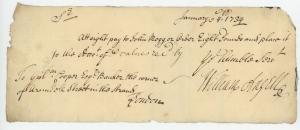 January 4 1734
At sight pay to John Hogg or order Eight Pounds and place it
to the Accot of value recd by
Yr Humble Servt
William Angell
To Banker the corner
of Arundel Street in the Strand
London